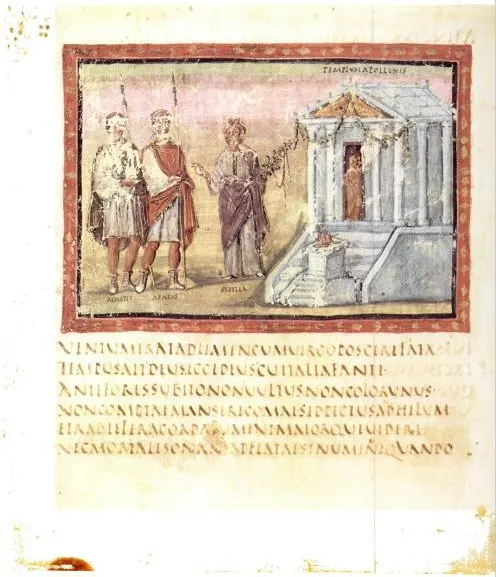 TEMPLVMAPOLLINIS
ACHATES AENEAS SIBYLLA
VENTVMERATADLIMENCVMVIRGOPOSCEREFATA
TEMPVSAITDEVSECCEDEVSCVITALIAFANTI
ANTEFORESSVBITONONVVLTVSNONCOLORVNVS
NONCOMPTAEMANSERECOMAESEDPECTVSANHELVM
ETRABIEFERACORDATVMENTMAIORQVEVIDERI
NECMORTALESONANSADFLATAESTNVMINEQVANDO